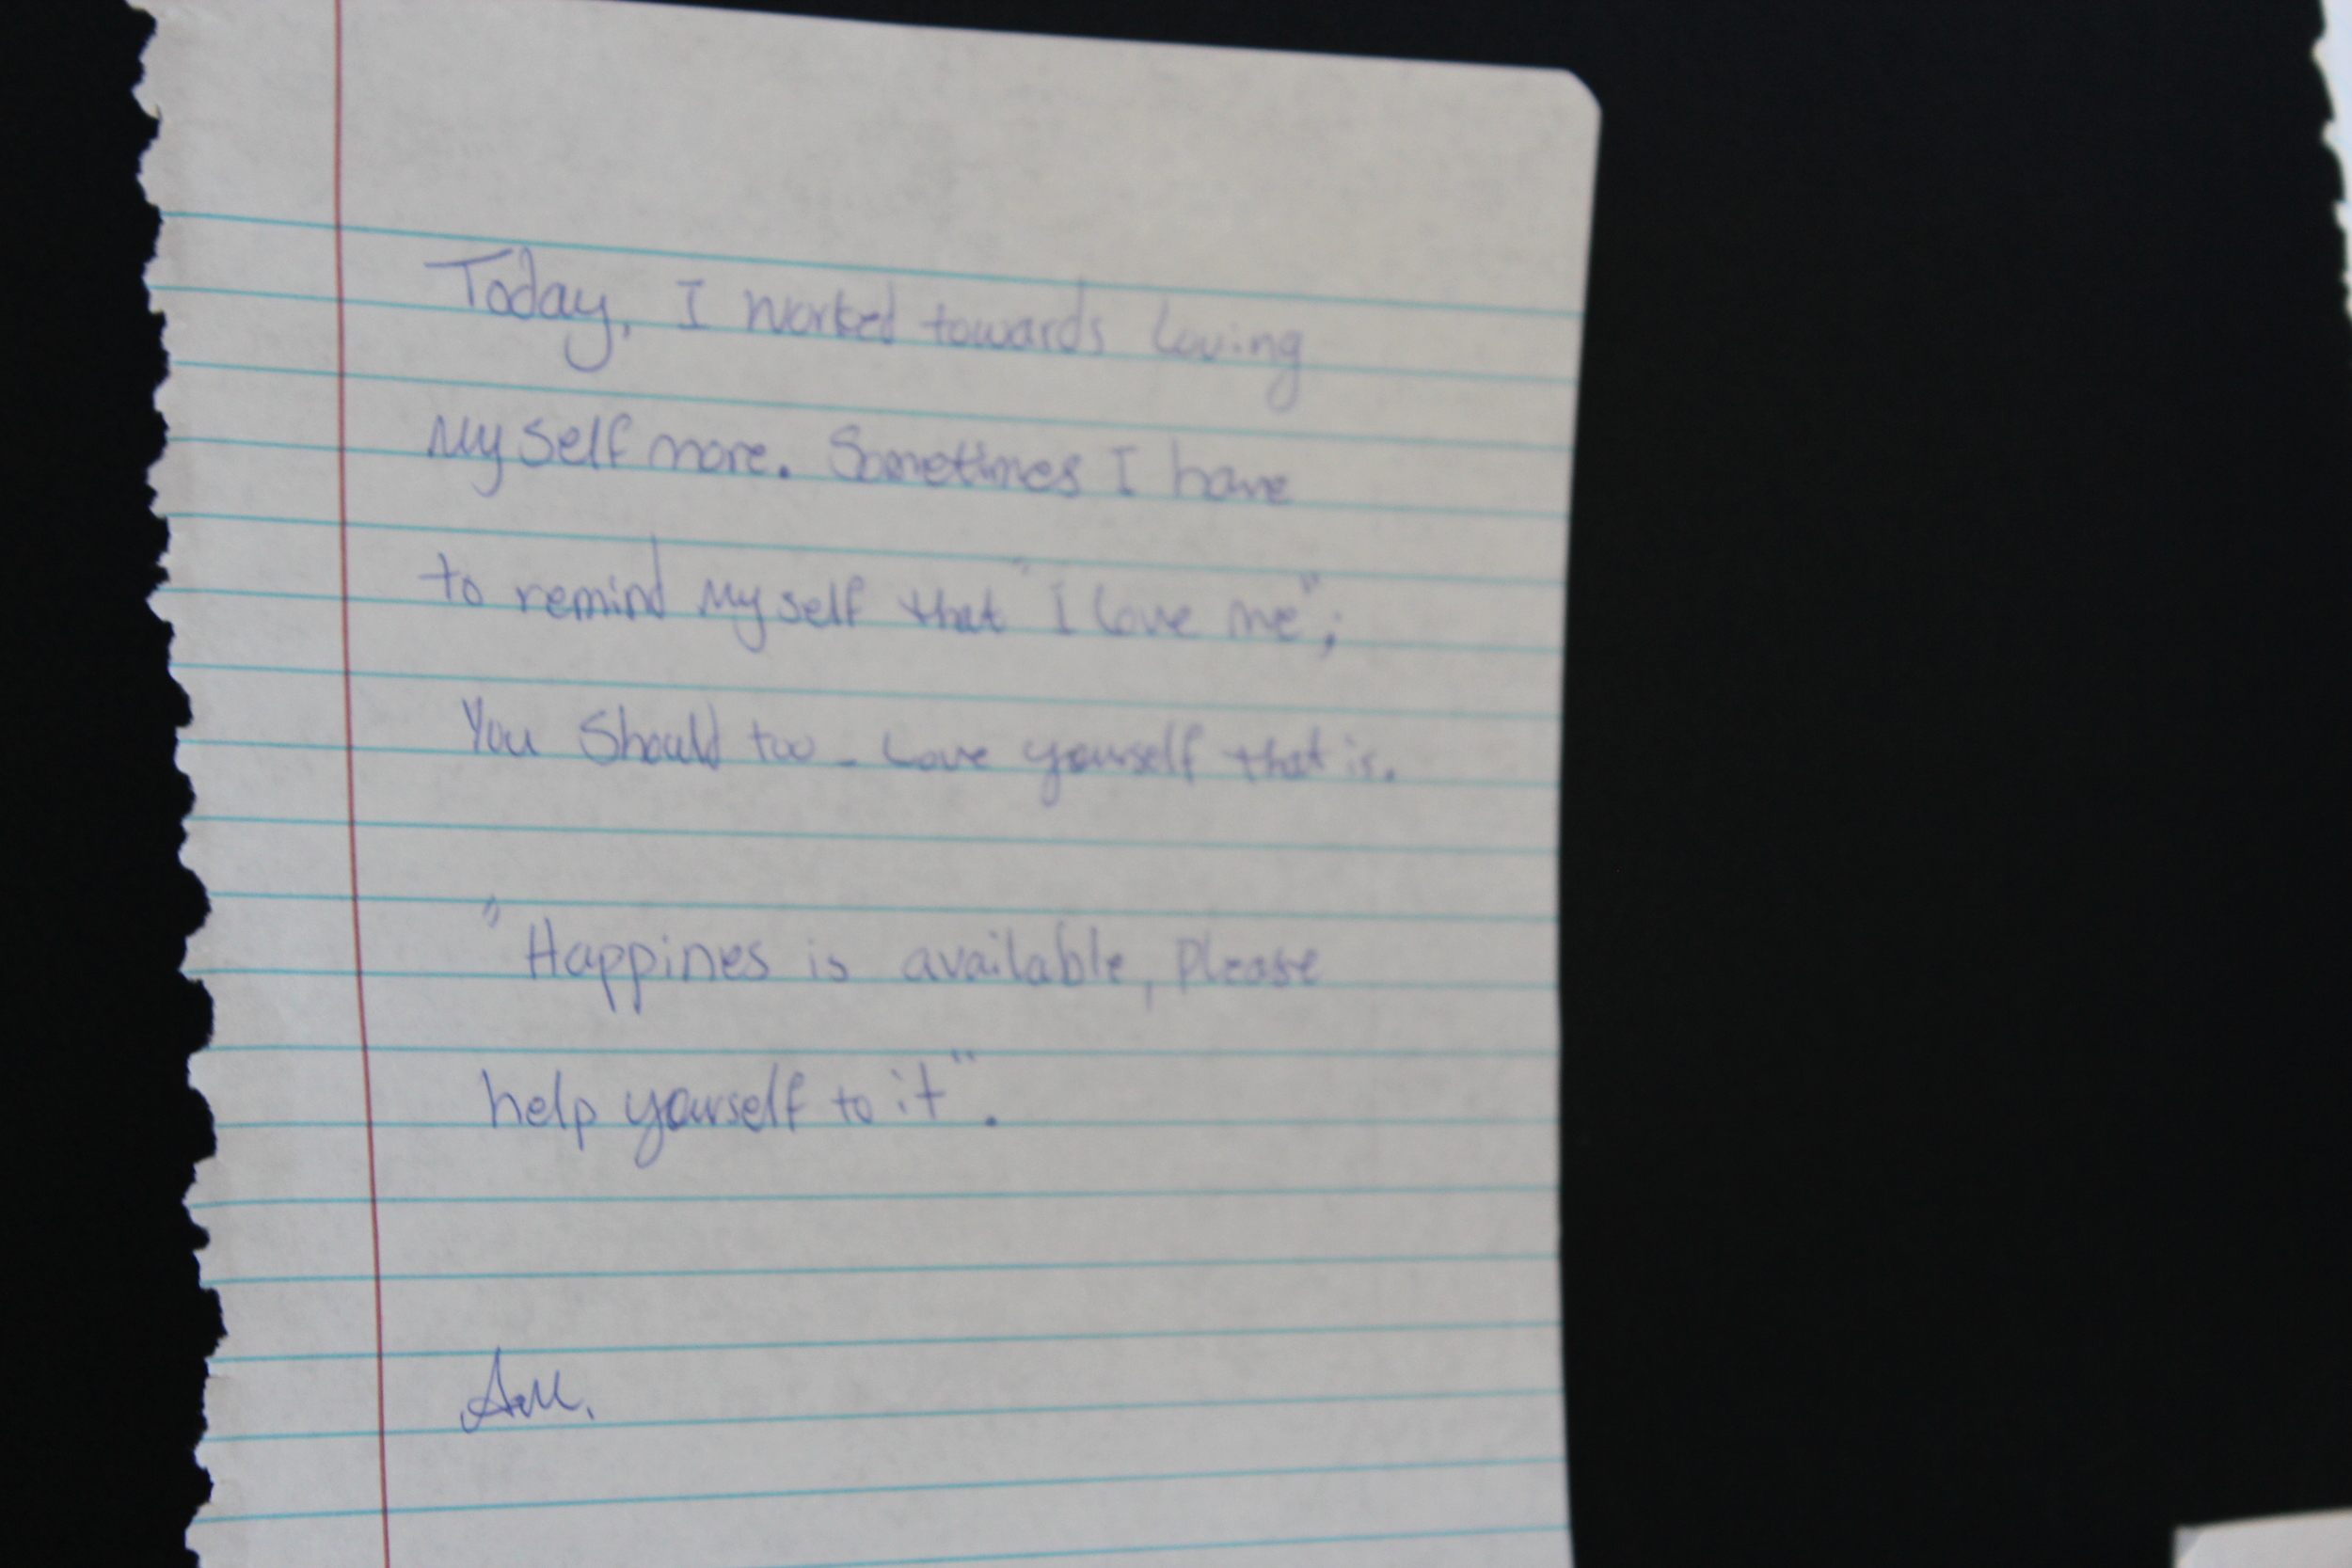 Today, I worked towards loving
myself more. Sometimes I have
to remind myself that "I love me";
You Should too - Love yourself that is.
"Happines is available, Please
help yourself to it".